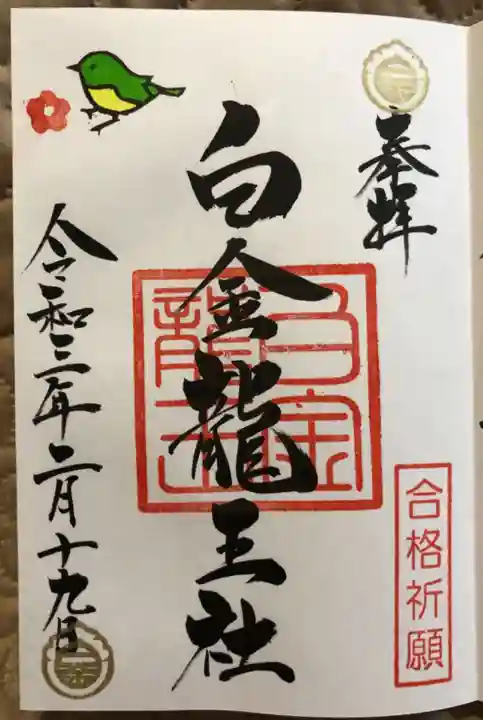 奉拝
合格祈願
白金龍王社
白金
龍王
令和三年二月十九日